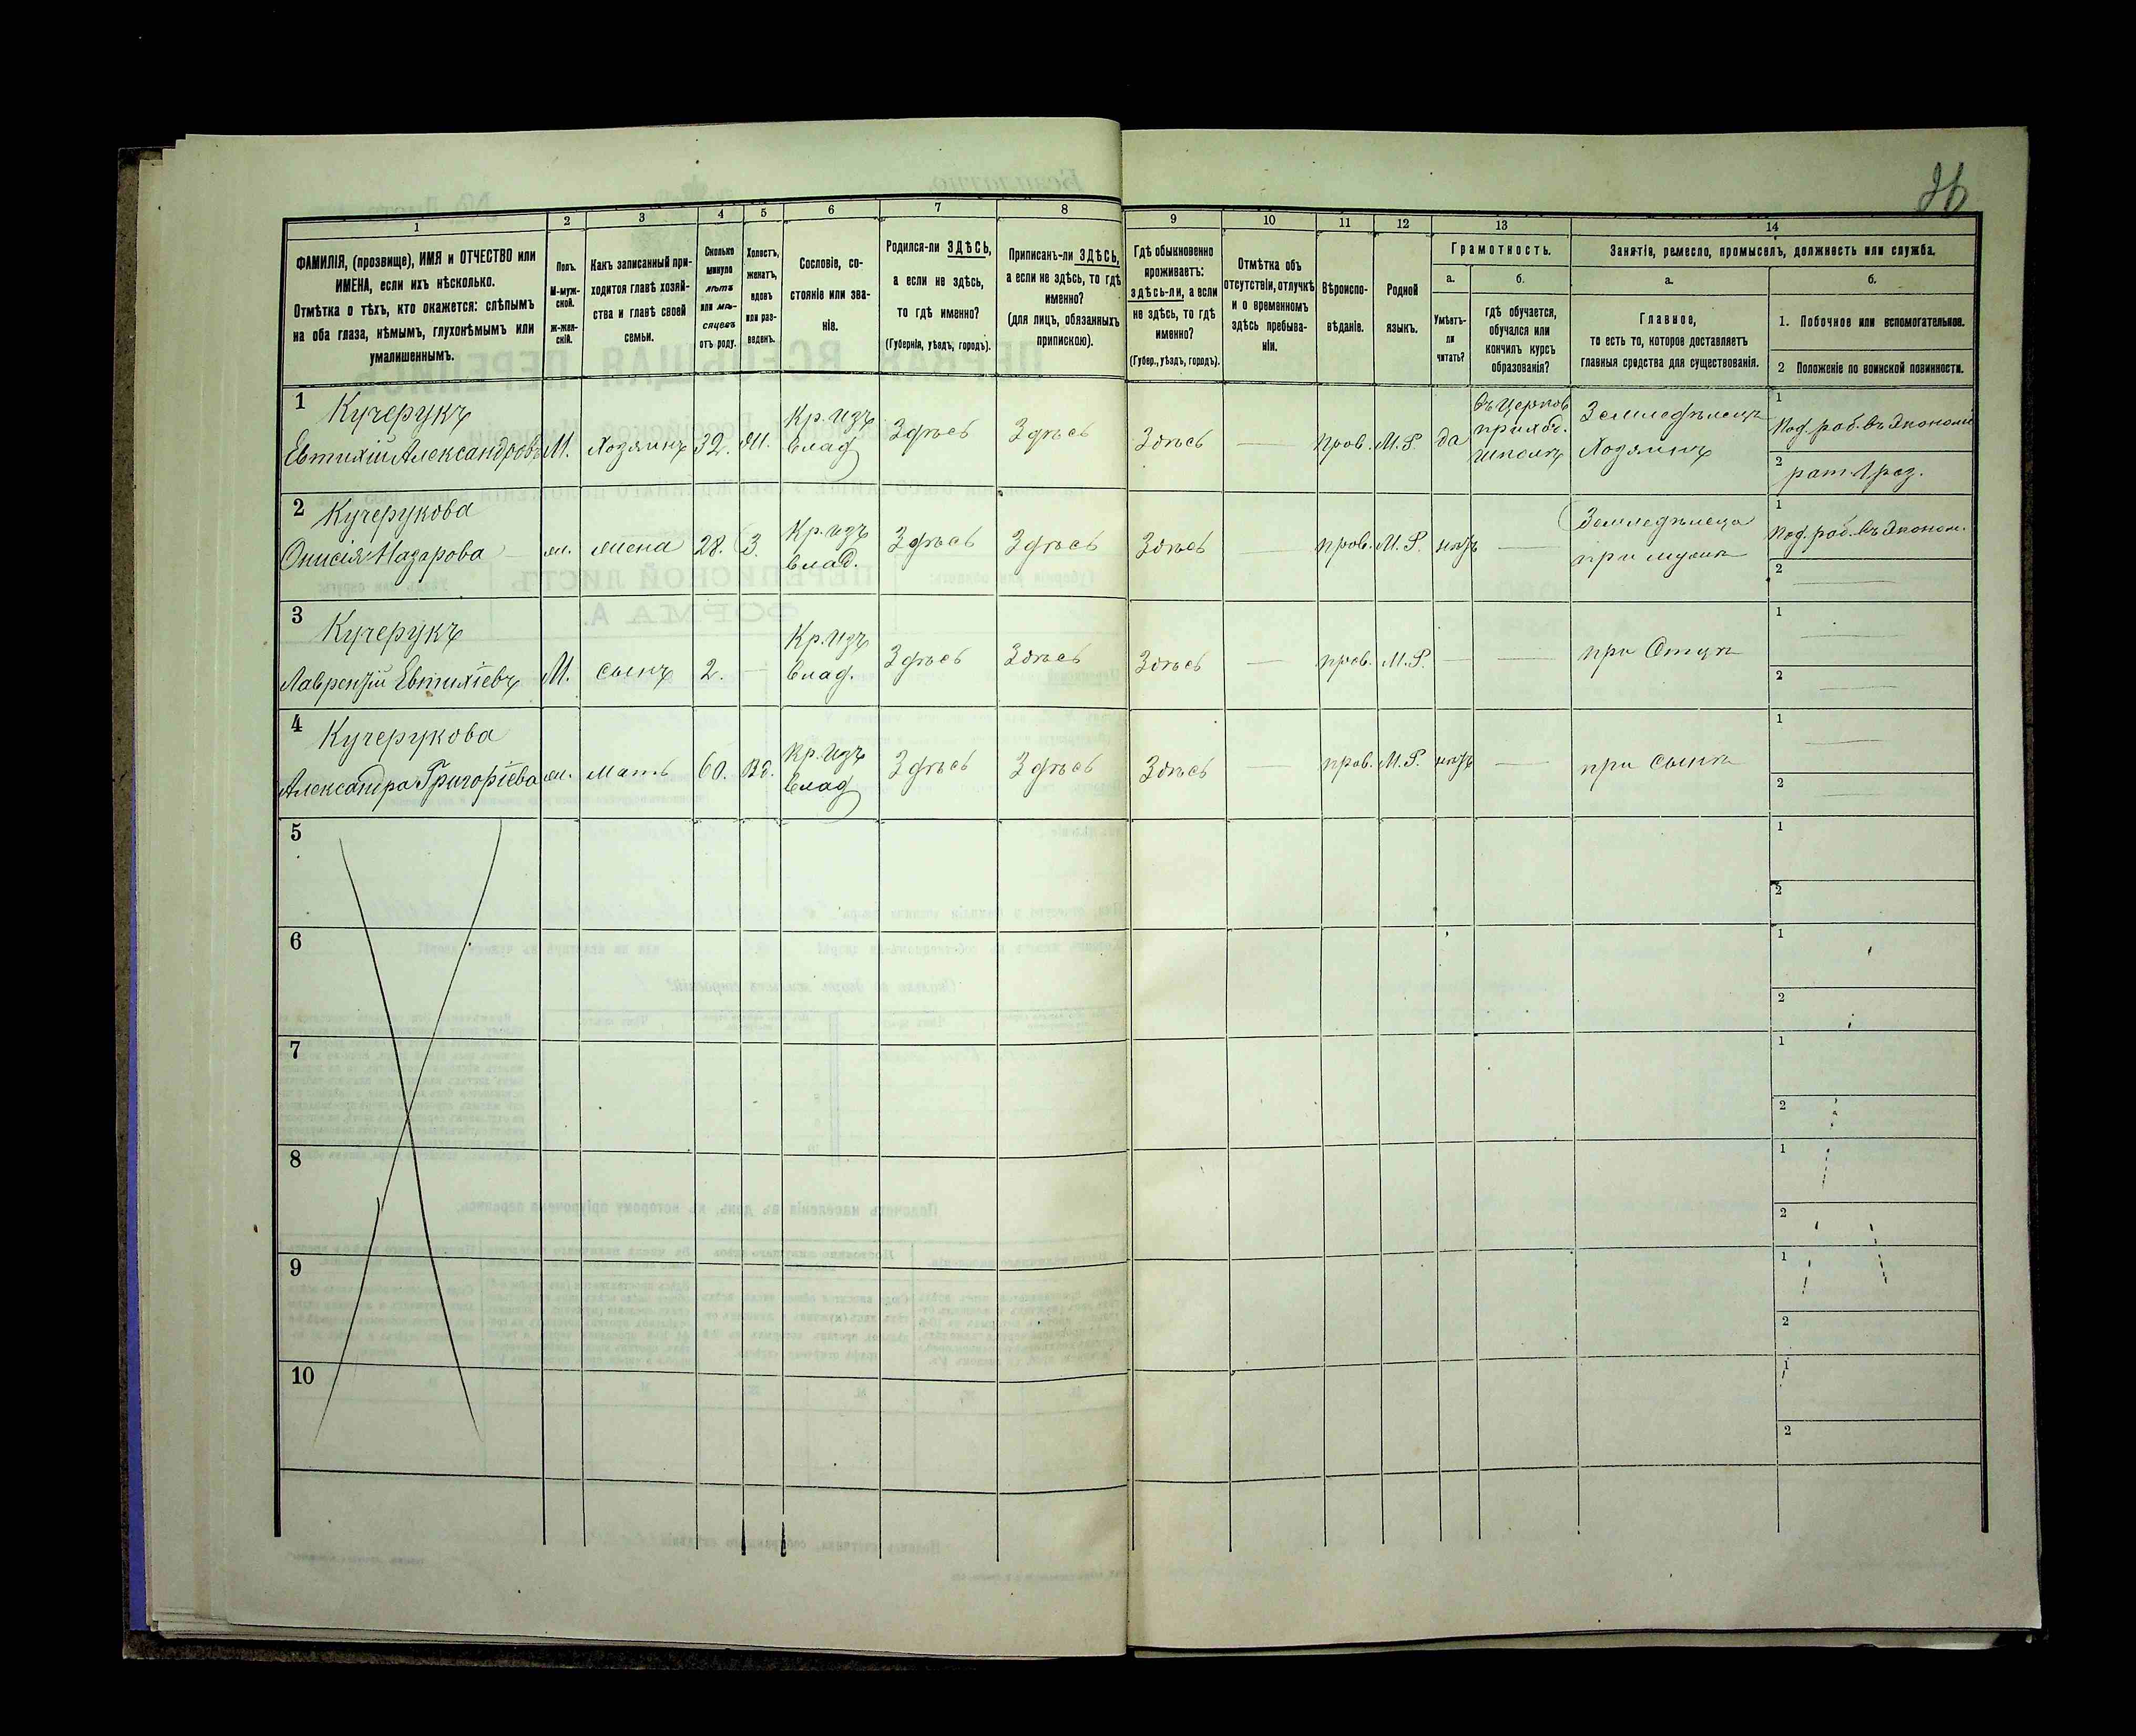 26
1 2 3 4 5 6 7 8 9 10 11 12 13 14
ФАМИЛІЯ, (прозвище), ИМЯ и ОТЧЕСТВО или
ИМЕНА, если ихъ нѣсколько.
Отмѣтка о тѣхъ, кто окажется: слѣпымъ
на оба глаза, нѣмымъ, глухонѣмымъ или
умалишеннымъ.
Полъ.
М-муж-
ской.
Ж-жен-
скій.
Какъ записанный при-
ходится главѣ хозяй-
ства и главѣ своей
семьи.
Сколько
минуло
лѣтъ
или мѣ-
сяцевъ
отъ роду.
Холостъ,
женатъ,
вдовъ
или раз-
веденъ.
Сословіе, со-
стояніе или зва-
ніе.
Родился-ли ЗДѢСЬ,
а если не здѣсь,
то гдѣ именно?
(Губернія, уѣздъ, городъ).
Приписанъ-ли ЗДѢСЬ,
а если не здѣсь, то гдѣ
именно?
(для лицъ, обязанныхъ
припискою).
Гдѣ обыкновенно
проживаетъ:
здѣсь-ли, а если
не здѣсь, то гдѣ
именно?
(Губер., уѣздъ, городъ).
Отмѣтка объ
отсутствіи, отлучкѣ
и о временномъ
здѣсь пребыва-
ніи.
Вѣроиспо-
вѣданіе.
Родной
языкъ.
Грамотность.
а.
Умѣетъ-
ли
читать?
б.
гдѣ обучается,
обучался или
кончилъ курсъ
образованія?
Занятія, ремесло, промыселъ, должность или служба.
а.
Главное,
то есть то, которое доставляетъ
главныя средства для существованія.
б.
1. Побочное или вспомогательное.
2 Положеніе по воинской повинности.
1 Кучерукъ
Евтихій Александровъ М. Хозяинъ 32. Ж. Кр. изъ влад Здѣсь Здѣсь Здѣсь — прав. М.Р. да
въ церков
приход.
школѣ
Земледѣлецъ
Хозяинъ
1 Под. раб. въ Эконом
2 рат. 1 раз.
2 Кучерукова
Онисія Назарова ж. жена 28. З. Кр. изъ влад. Здѣсь Здѣсь Здѣсь — прав. М.Р. нѣтъ —
Земледѣлеца
при мужѣ
1 Под. раб. въ Эконом.
2 —
3 Кучерукъ
Лаврентій Евтихіевъ М. сынъ 2. — Кр. изъ влад. Здѣсь Здѣсь Здѣсь — прав. М.Р. — — при Отцѣ
1 —
2 —
4 Кучерукова
Александра Григоріева ж. мать 60. Вд. Кр. изъ влад Здѣсь Здѣсь Здѣсь — прав. М.Р. нѣтъ — при сынѣ
1 —
2 —
5 1
2
6 1
2
7 1
2
8 1
2
9 1
2
10 1
2